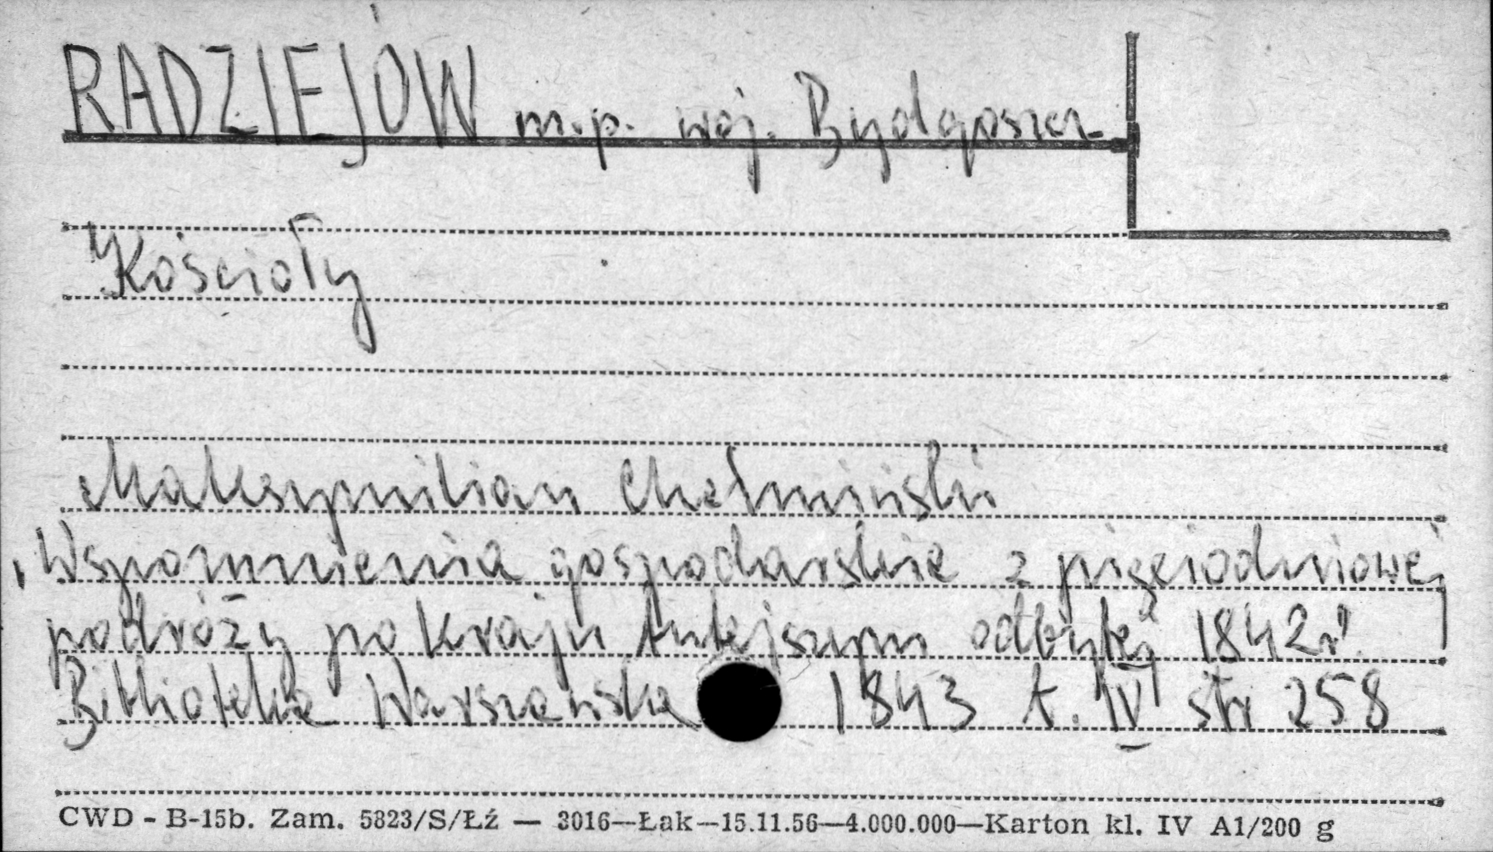 RADZIEJÓW m.p. woj. Bydgoszcz
Kościoły
Maksymilian Chełmiński
"Wspomnienia gospodarskie z pięciodniowej
podróży po kraju tutejszym odbytej 1842 r."
Biblioteka Warszawska 1843 t. IV str 258
CWD - B-15b. Zam. 5823/S/Łź — 3016—Łak—15.11.56—4.000.000—Karton kl. IV A1/200 g